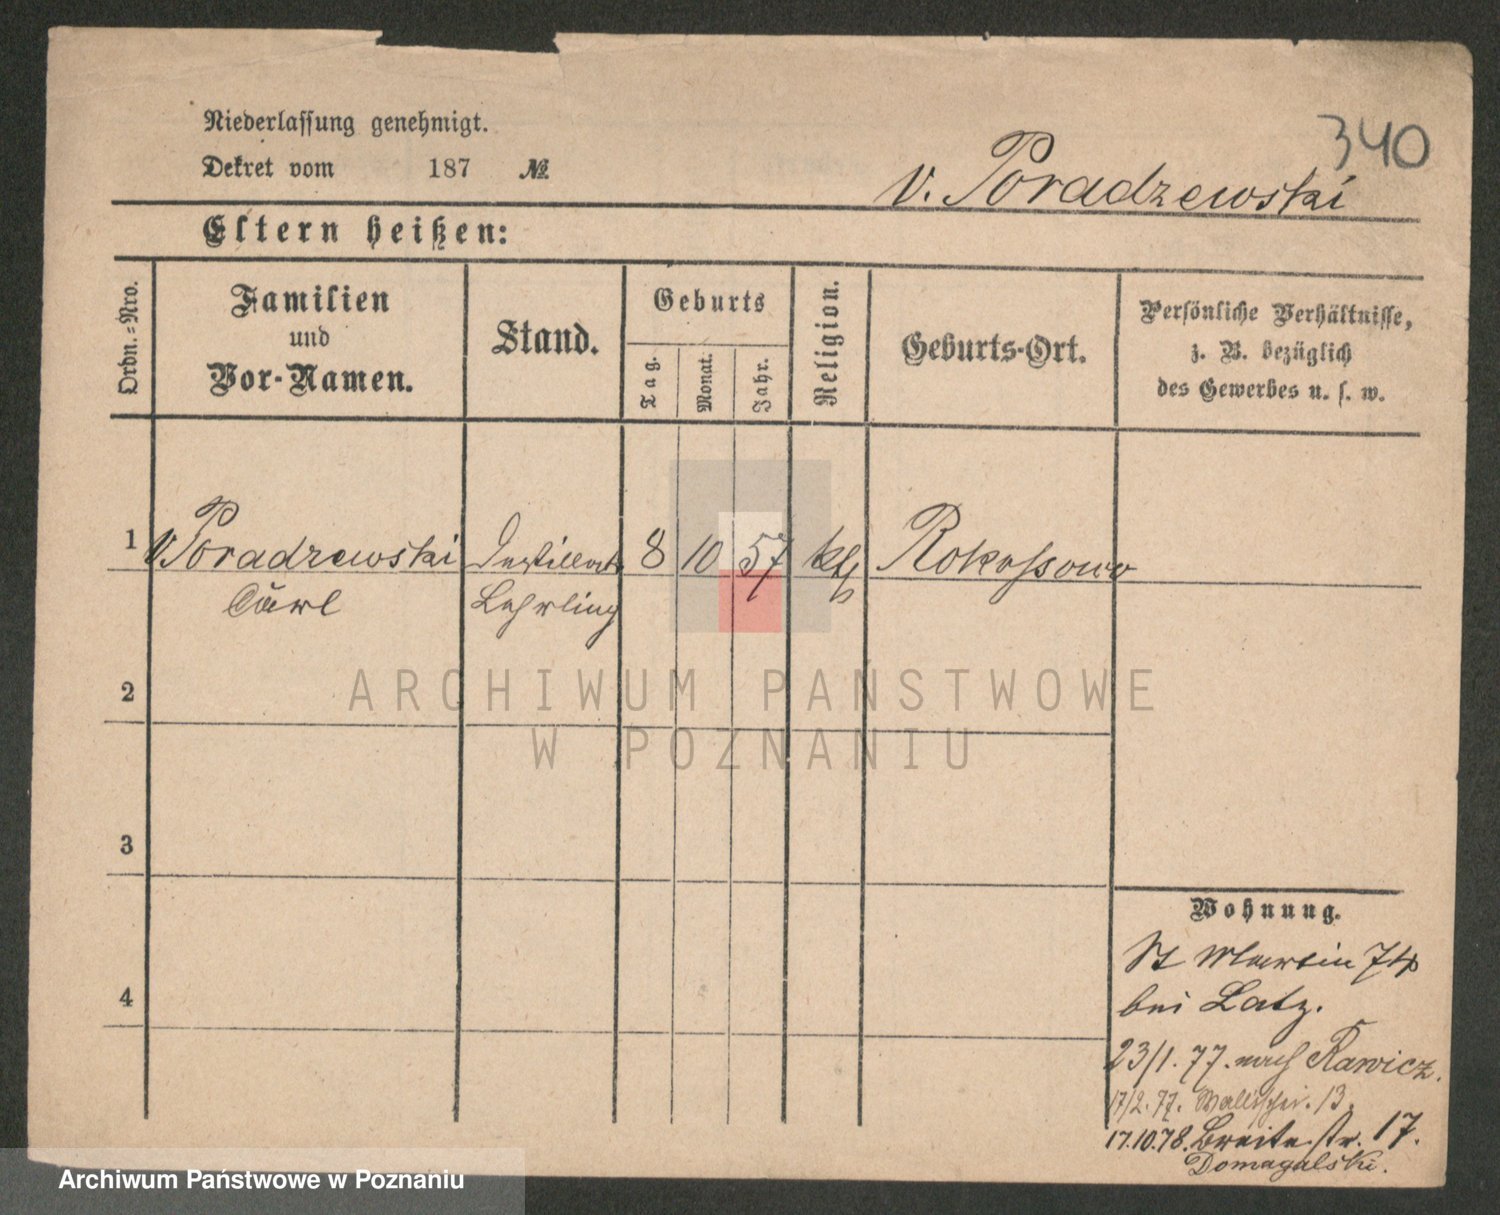 340
Niederlassung genehmigt.
Dekret vom 187 №
v. Poradzewski
Eltern heißen:
Ordn.-Nro.
Familien
und
Vor-Namen.
Stand.
Geburts
Tag.
Monat.
Jahr.
Religion.
Geburts-Ort.
Persönliche Verhältnisse,
z. B. bezüglich
des Gewerbes u. s. w.
1 v. Poradzewski Destillat. 8 10 57 kth Rokossowo
Carl Lehrling
2
3
4
ARCHIWUM PAŃSTWOWE
W POZNANIU
Wohnung.
St Martin 74
bei Latz.
23/1. 77. nach Rawicz.
17/2. 77. Wallischei. 13.
17.10.78. Breite str. 17.
Domagalski.
Archiwum Państwowe w Poznaniu